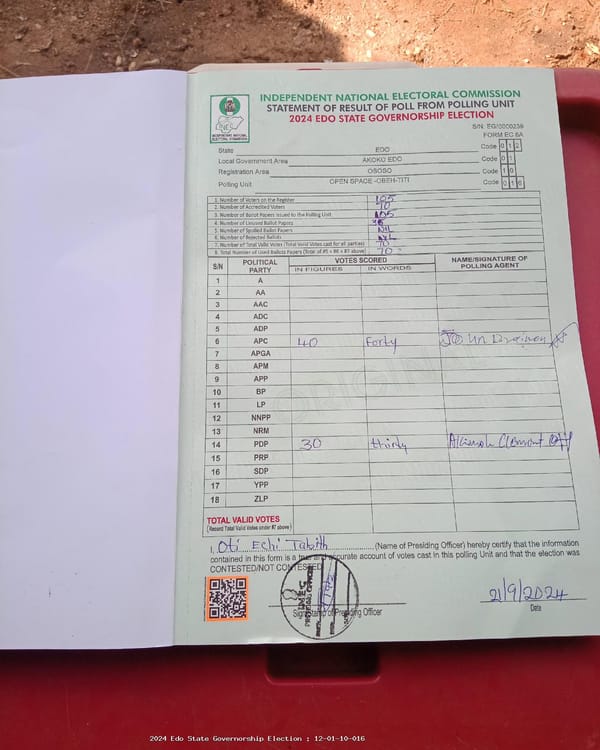 INDEPENDENT NATIONAL ELECTORAL COMMISSION
STATEMENT OF RESULT OF POLL FROM POLLING UNIT
2024 EDO STATE GOVERNORSHIP ELECTION
S/N: EG/0000239
FORM EC 8A
State EDO Code 0 1 2
Local Government Area AKOKO EDO Code 0 1
Registration Area OSOSO Code 1 0
Polling Unit OPEN SPACE -OBEH-TITI Code 0 1 6
1. Number of Voters on the Register 105
2. Number of Accredited Voters 70
3. Number of Ballot Papers Issued to the Polling Unit 105
4. Number of Unused Ballot Papers
5. Number of Spoiled Ballot Papers NIL
6. Number of Rejected Ballots NIL
7. Number of Total Valid Votes (Total Valid Votes cast for all parties) 70
8. Total Number of Used Ballots Papers (Total of #5 + #6 + #7 above) 70
S/N POLITICAL PARTY VOTES SCORED NAME/SIGNATURE OF POLLING AGENT
IN FIGURES IN WORDS
1 A
2 AA
3 AAC
4 ADC
5 ADP
6 APC 40 Forty
7 APGA
8 APM
9 APP
10 BP
11 LP
12 NNPP
13 NRM
14 PDP 30 thirty
15 PRP
16 SDP
17 YPP
18 ZLP
TOTAL VALID VOTES
(Record Total Valid Votes under #7 above)
I, Oti Echi Tabith (Name of Presiding Officer) hereby certify that the information
contained in this form is a true and accurate account of votes cast in this polling Unit and that the election was
CONTESTED/NOT CONTESTED
21/9/2024
Sign/Stamp of Presiding Officer Date
2024 Edo State Governorship Election : 12-01-10-016